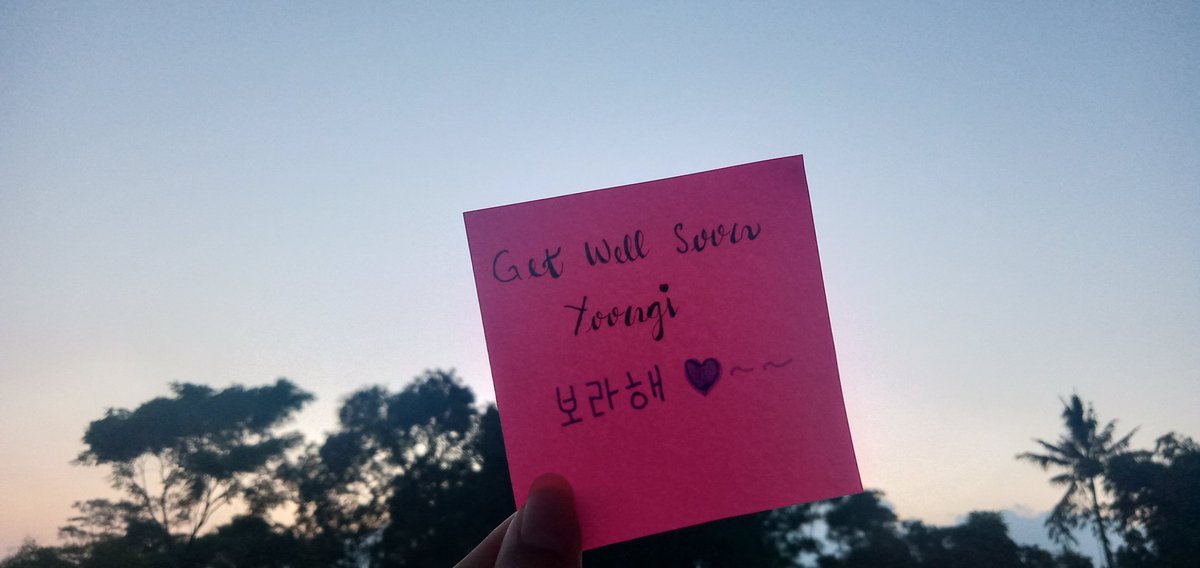 Get Well Soon
Yoongi
보라해 💜~~